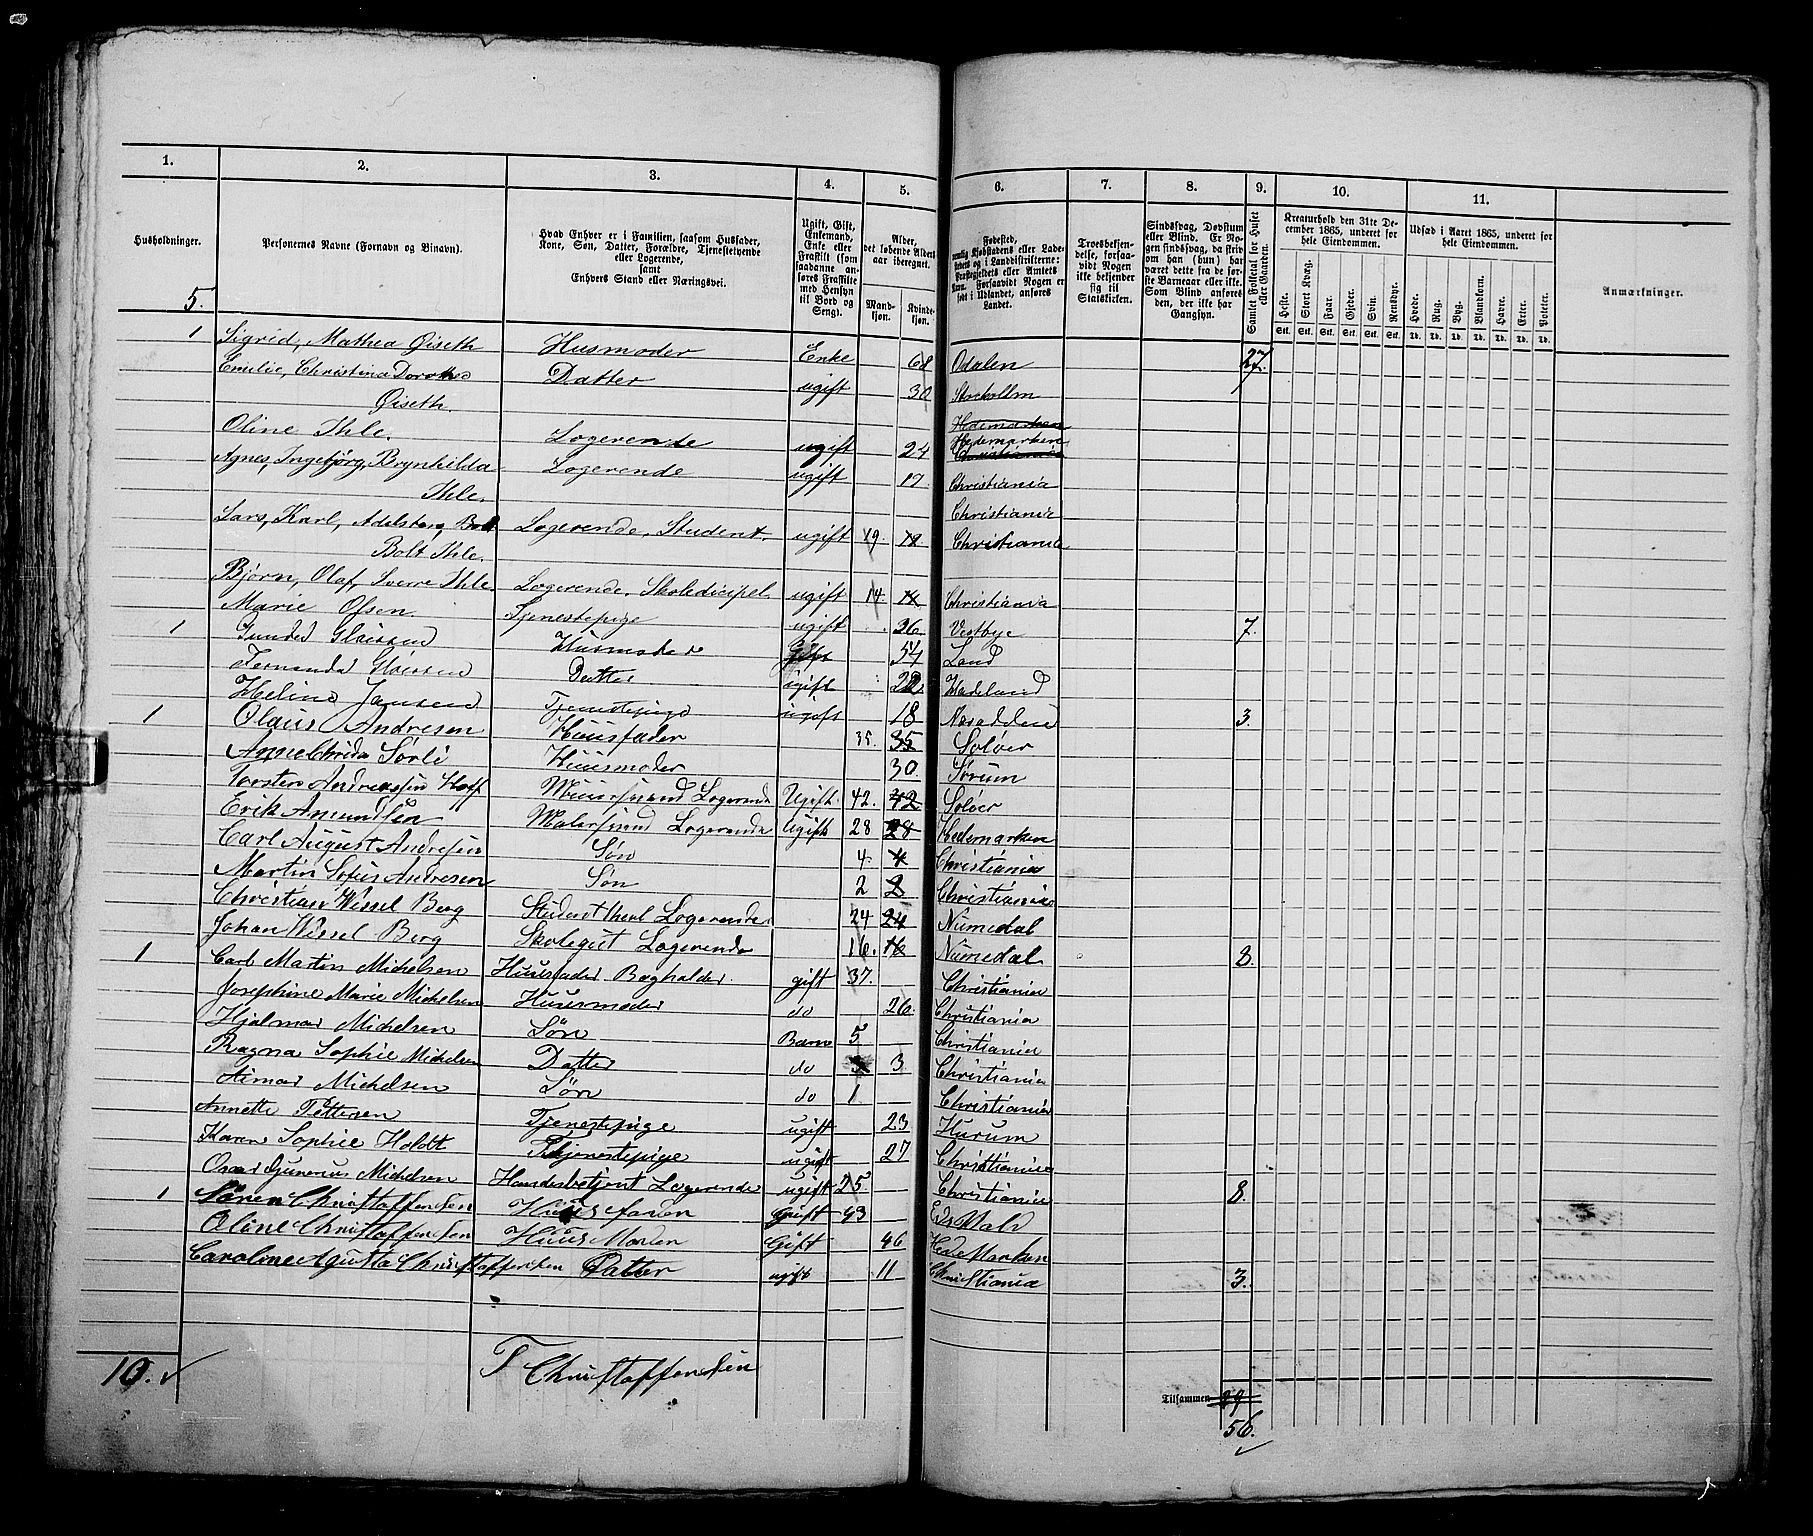 1. 2. 3. 4. 5. 6. 7. 8. 9. 10. 11.
Husholdninger.
Personernes Navne (Fornavn og Binavn).
Hvad Enhver er i Familien, saasom Husfader,
Kone, Søn, Datter, Forældre, Tjenestetyende
eller Logerende,
samt
Enhvers Stand eller Næringsvei.
Ugift, Gift,
Enkemand,
Enke eller
Fraskilt (som
saadanne an-
føres Fraskilte
med Hensyn
til Bord og
Seng).
Alder,
det løbende Alders-
aar iberegnet.
Mand-
kjøn.
Kvinde-
kjøn.
Fødested,
nemlig Kjøbstadens eller Lade-
stedets og i Landdistrikterne:
Præstegjeldets eller Amtets
Navn. Forsaavidt Nogen er
født i Udlandet, anføres
Landet.
Troesbekjen-
delse, forsaa-
vidt Nogen
ikke bekjender
sig til
Statskirken.
Sindssvag, Døvstum
eller Blind. Er No-
gen sindssvag, da skriv
om han (hun) har
været dette fra de før-
ste Barneaar eller ikke.
Som Blind anføres
den, der ikke har
Gangsyn.
Samlet Folketal for Huset
eller Gaarden.
Kreaturhold den 31te De-
cember 1865, underet for
hele Eiendommen.
Heste. Stort Kvæg. Faar. Gjeder. Svin. Rensdyr.
Stk. Stk. Stk. Stk. Stk. Stk.
Udsæd i Aaret 1865, underet for
hele Eiendommen.
Hvede. Rug. Byg. Blandkorn. Havre. Erter. Poteter.
Td. Td. Td. Td. Td. Td. Td.
Anmærkninger.
5.
1 Sigrid, Mathea Øiseth Husmoder Enke 68 Odalen 27.
Emilie, Christina Dorothea Datter ugift 30 Stockollm
Øiseth.
Hedemarken
Oline Ihle. Logerende ugift 24 Hedemarken
Christiania
Agnes, Ingebjörg, Brynhilda Logerende ugift 17. Christiania
Ihle.
Christiania
Lars, Karl, Adelsten, Bolt Logerende, Student. ugift 19. 19. Christiania
Bolt Ihle.
Björn, Olaf, Sverre Ihle Logerende, Skoledicipel ugift 14. 14 Christiania
Marie Olsen Tjenestepige ugift 26 Vestbye 7.
1 Husmoder Gift 54 Land
Fernanda Datter ugift 22 Hadeland
Heline Jansen Tjenestepige ugift 18 Nesodden 3.
1 Olaus Andresen Huusfader 35. 35 Solöer
Sörli Huusmoder 30. Sörum
Torsten Andreassen Hoff Muursvend Logerende Ugift 42. 42 Solöer
Erik Amundsen Malersvend Logerende Ugift 28 28 Hedemarken
Carl August Andresen Sön 4. 4 Christiania
Martin Sofus Andresen Sön 2 2 Christiania
Christian Wissel Berg Student theol Logerende. 24 24 Numedal
Johan Wissel Berg Skolegut Logerende 16. 16 Numedal 8.
1 Carl Martin Michelsen Huusfader Bogholder. gift 37. Christiania
Josephine Marie Michelsen Huusmoder do 26. Christiania
Hjalmar Michelsen Sön Barn 5 Christiania
Ragna Sophie Michelsen Datter do 3 3 Christiania
Michelsen Sön do 1 Christiania
Annette Pettersen Tjenestepige ugift 23 Hurum
Karen Sophie Holdt Tjenestepige ugift 27 Christiania
Michelsen Handelsbetjent Logerende ugift 25 Christiania 8.
1 Sören Christoffersen Huusfader Gift 43 Eidsvold
Oline Christoffersen Huus Moder Gift 46 Hedemarken
Caroline Agusta Christoffersen Datter ugift 11 Christiania 3.
10. ✓ Christoffersen
Tilsammen 29
56.
✓